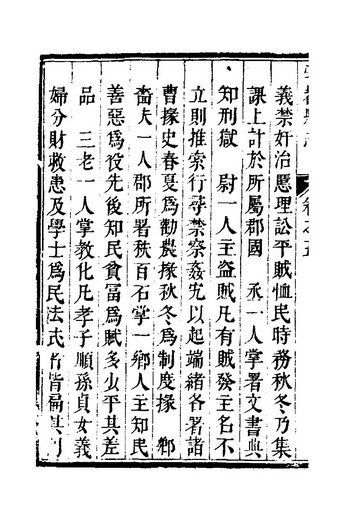 義禁奸治惡理訟平賊恤民時務秋冬乃集
課上計於所屬郡國　丞一人掌署文書典
知刑獄　尉一人主盜賊凡有賊發主名不
立則推索行尋禁察姦宄以起端緒各署諸
曹掾史春夏爲勸農掾秋冬爲制度掾　鄉
嗇夫一人郡所署秩百石掌一鄉人主知民
善惡爲役先後知民貧富爲賦多少平其差
品　三老一人掌教化凡孝子順孫貞女義
婦分財救患及學士爲民法式者皆扁其